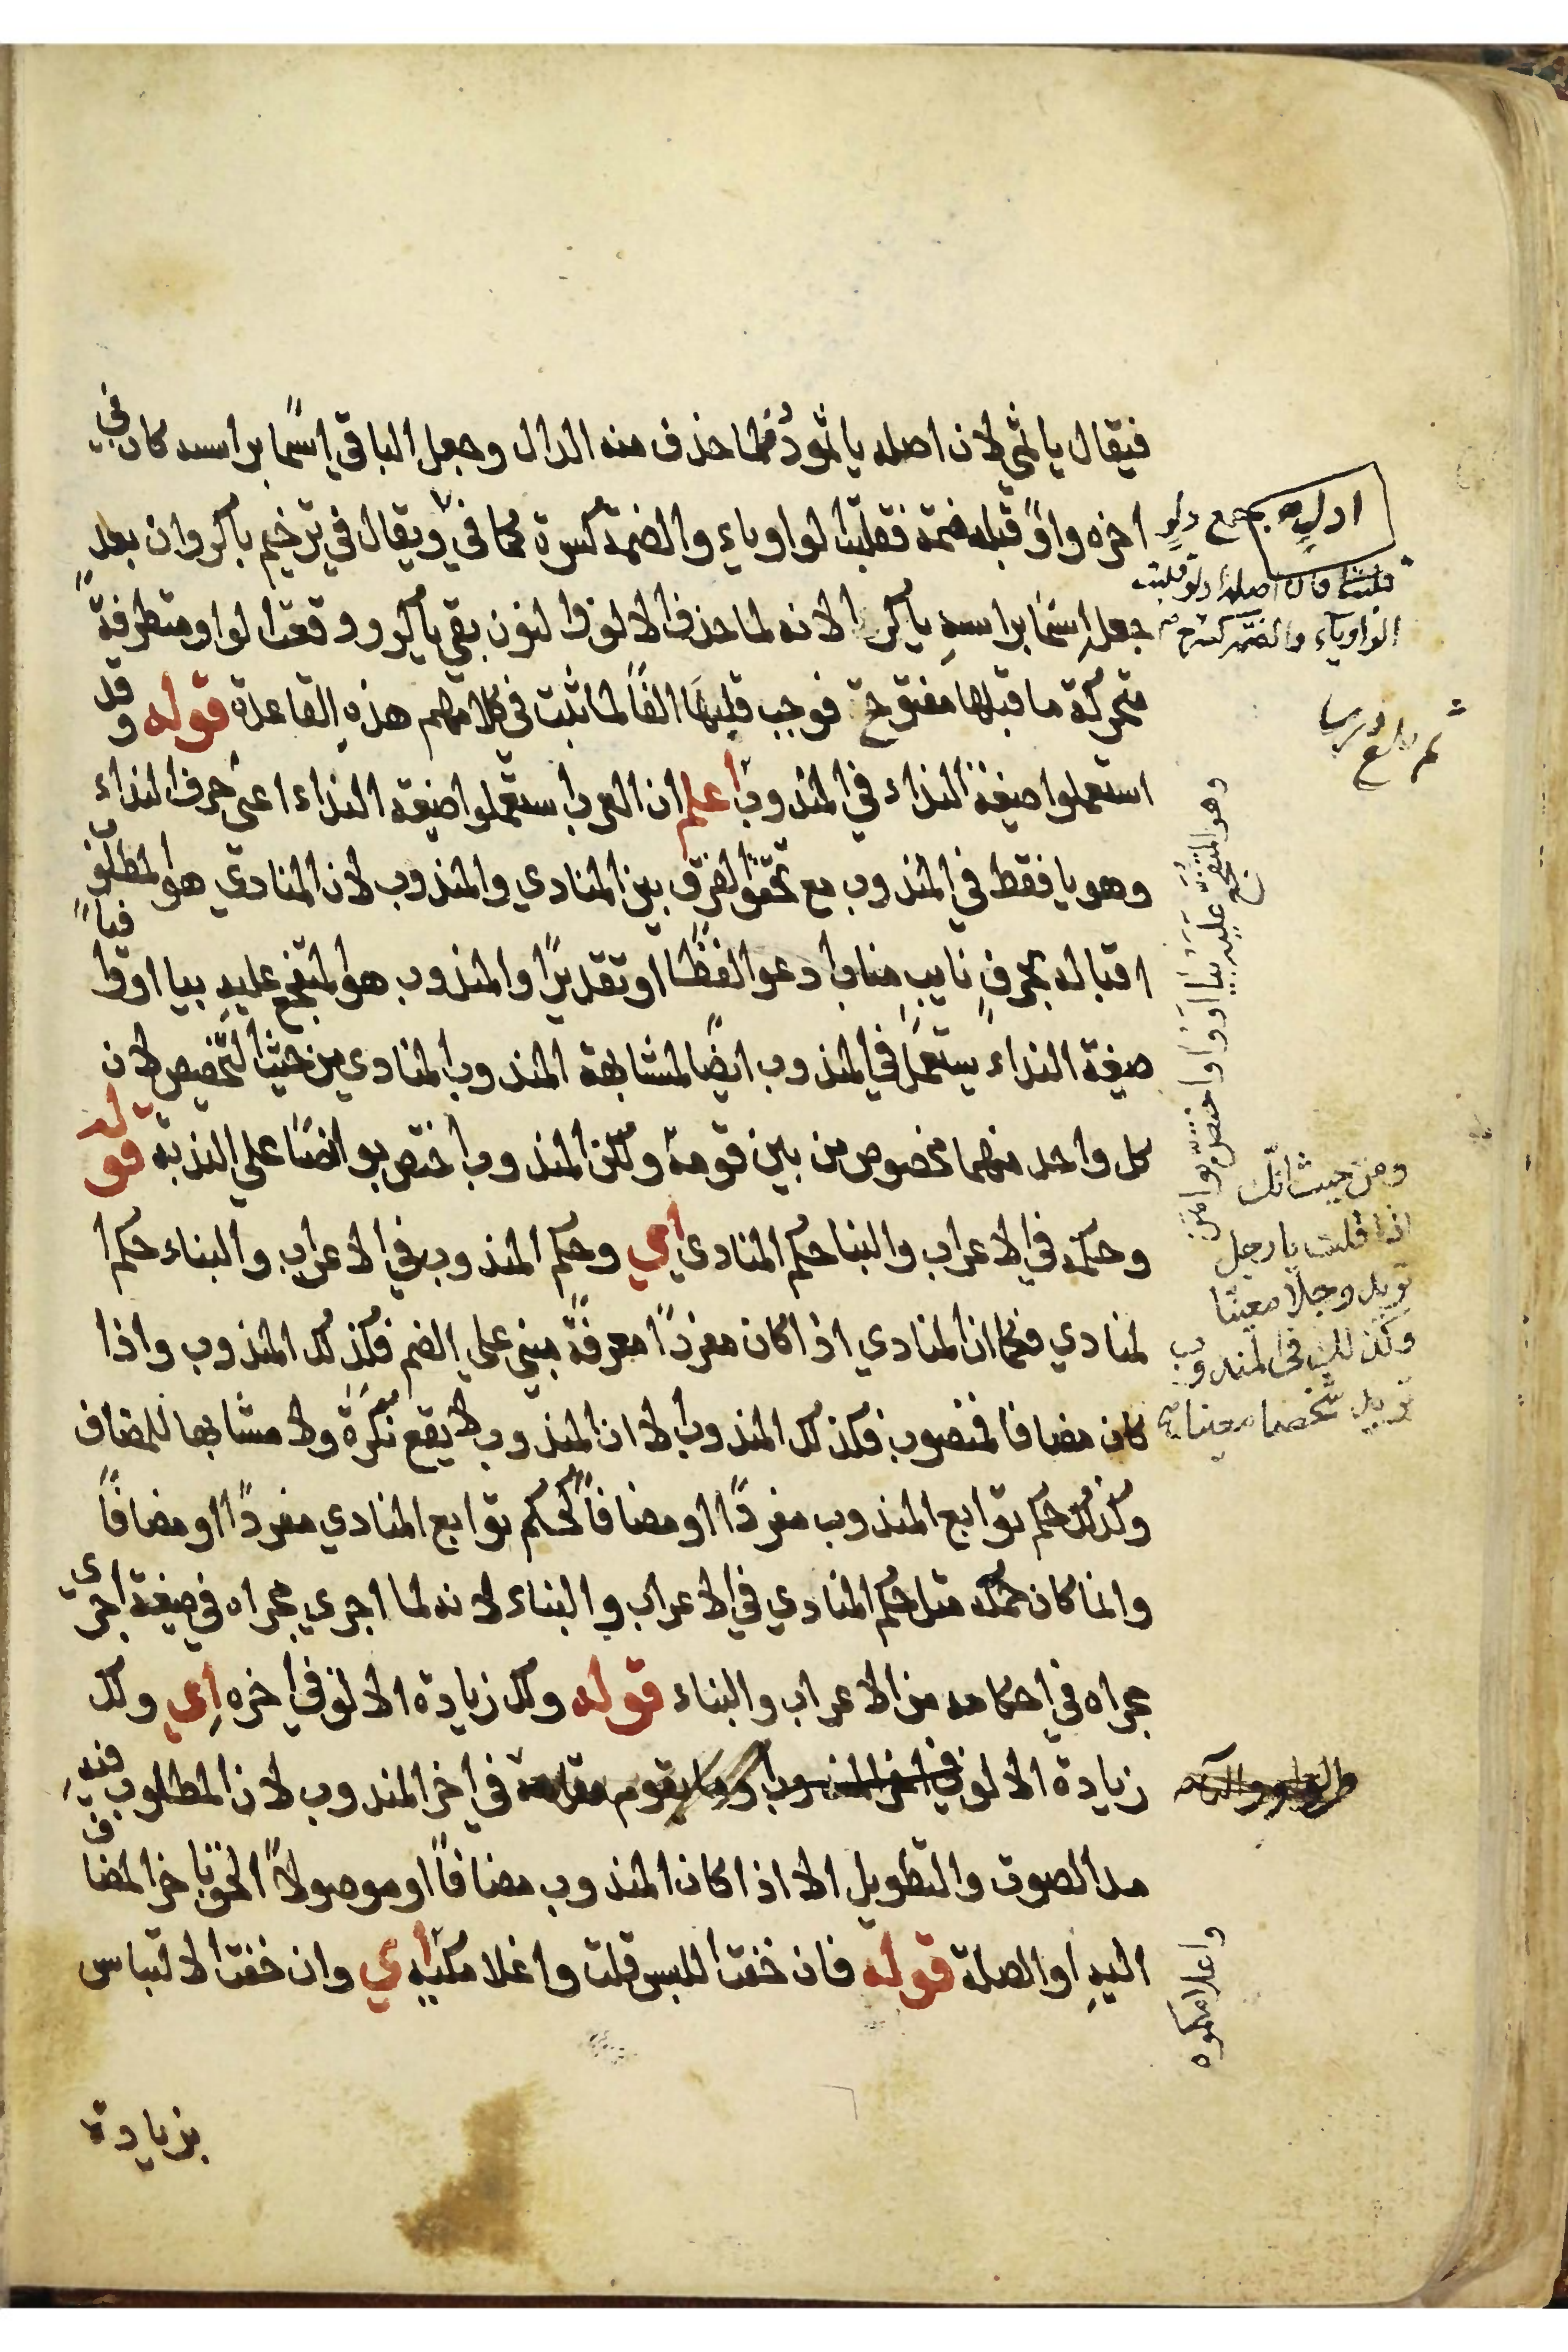 فيقال يا ثمي لان اصله يا ثمودُ فلما حذف منه الدال وجعل الباقي اسمًا براسه كان في
اخره واوٌ قبله ضمة فقلبت الواو ياء والضمة كسرة كما في ويقال في ترخيم باكروان بعد
جعله اسمًا براسهِ ياكرا لانه لما حذف الالف والنون بقي ياكرو وقعت الواو متطرفةً
متحركة ما قبلها مفتوحة فوجب قلبها الفًا لما ثبت في كلامهم هذه القاعدة قوله وقد
استعملوا صيغة النداء في المندوب اعلم ان العرب استعملوا صيغة النداء اعني حرف النداء
وهو يا فقط في المندوب مع تحقق الفرق بين المنادي والمندوب لان المنادي هو المطلوب
اقباله بحرفٍ نايبٍ مناب ادعو لفظًا او تقديرًا والمندوب هو المتفجع عليهِ بيا او وا فياً
صيغة النداء يستعمل في المندوب ايضًا لمشابهة المندوب المنادى من حيث التخصيص لان
كل واحد منهما مخصوص من بين قومه ولكن المندوب اختص بوا نصًا على الندبة قوله
وحكمه في الاعراب والبنا حكم المنادي اي وحكم المندوب في الاعراب والبناء حكم ا
لمنادي فكما ان المنادي اذا كان مفردًا معرفةً مبني على الضم فكذلك المندوب واذا
كان مضافا فمنصوب فكذلك المندوب الا ان المندوب لا يقع نكرة ولا مشابها للمضاف
وكذلك حكم توابع المندوب مفردًا او مضافاً كحكم توابع المنادي مفردًا او مضافاً
وانما كان حكمه مثل حكم المنادي في الاعراب والبناء لانه لما اجري مجراه في صيغة اجرى
مجراه في احكامه من الاعراب والبناء قوله ولك زيادة الالف في اخره اي ولك
زيادة الالف في اخر المندوب وما يقوم مقامه في اخر المندوب لان المطلوب فيهِ
مد الصوت والتطويل الا اذا كان المندوب مضافاً او موصولاً الحق باخر المضاف
اليهِ او الصلة قوله فان خفت اللبس قلت واغلامكيه اي وان خفت الالتباس
بزيادة
ادلٍ جمع دلوٍ
فان اصله ادلو قلبت
الواو ياء والضمة كسرة
وهو المتفجع عليه بيا او وا واختص بوا
ومن حيث انك
اذا قلت يا رجل
تريد رجلا معينا
وكذلك في المندوب
تريد شخصا معينا
واغلامكموه